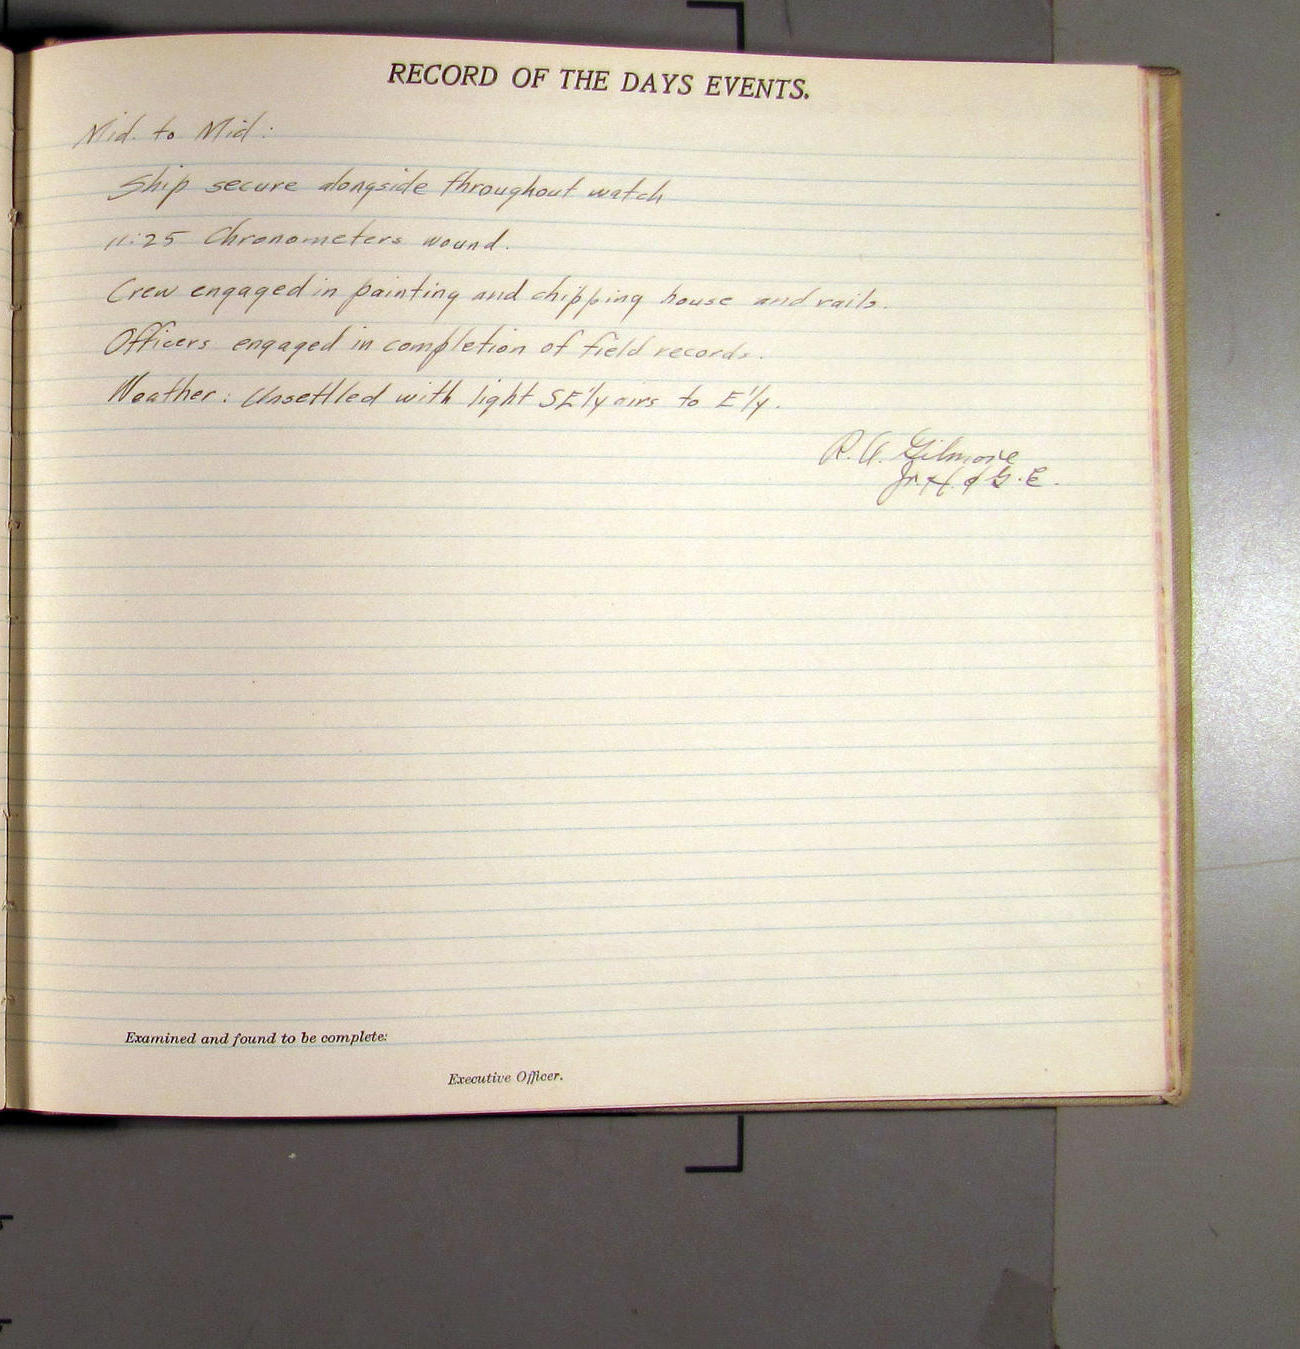 RECORD OF THE DAYS EVENTS.
Mid. to Mid:
Ship secure alongside throughout watch
11:25 Chronometers wound.
Crew engaged in painting and chipping house and rails.
Officers engaged in completion of field records.
Weather: Unsettled with light SE'ly airs to E'ly.
R. A. Gilmore
Jr. H. & G. E.
Examined and found to be complete:
Executive Officer.